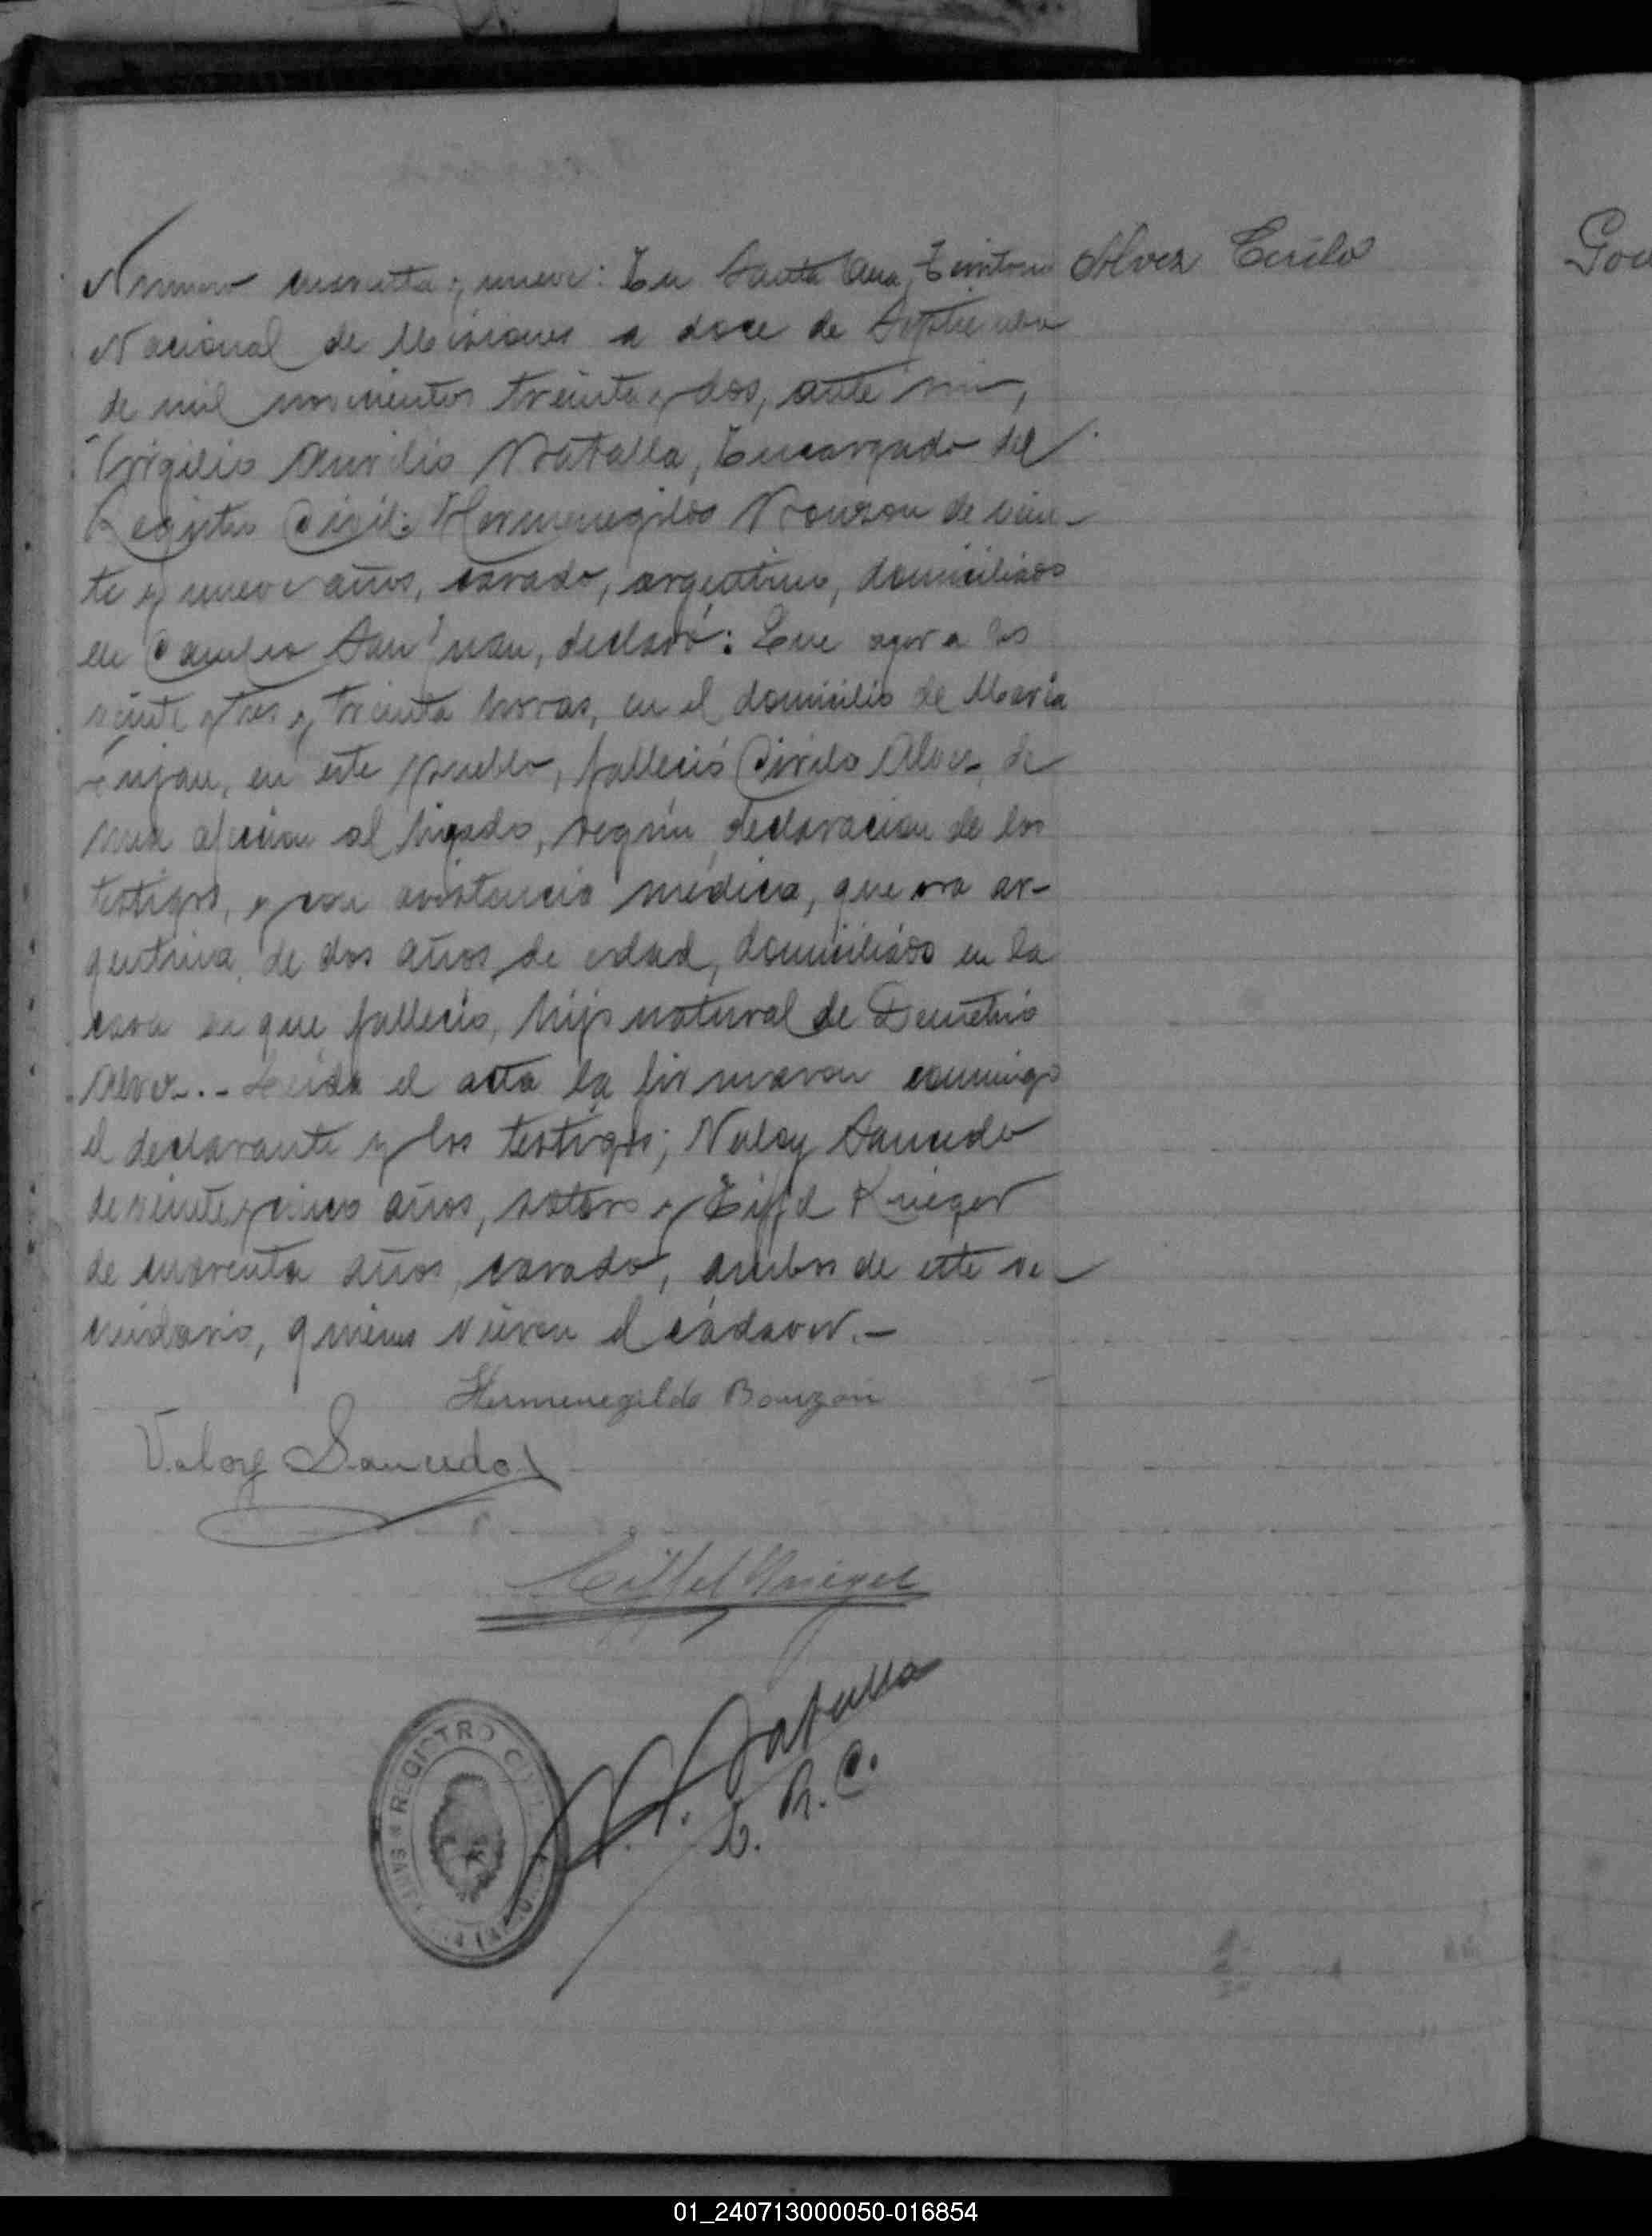 Alvez Cirilo
Numero cuarenta y nueve: En Santa Ana, Territorio
Nacional de Misiones a doce de Septiembre
de mil novecientos treinta y dos, ante mi,
Virgilio Aurelio Batalla, Encargado del
Registro Civil: Hermenegildo Bonzon de vein-
te y nueve años, casado, argentino, domiciliado
en Campo San Juan, declaró: Que ayer a las
veinte y tres y treinta horas, en el domicilio de Maria
en este pueblo, falleció Cirilo Alvez, de
una afeccion al higado, según declaracion de los
testigos, y con asistencia médica, que era ar-
gentino, de dos años de edad, domiciliado en la
casa en que falleció, hijo natural de Demetrio
Alvez.- Leida el acta la firmaron conmigo
el declarante y los testigos; Valoy Saucedo
de veinte y cinco años, soltero y Eiffel Krieger
de cuarenta años, casado, ambos de este ve-
cindario, quienes vieron el cádaver.-
Hermenegildo Bonzon
Valoy Saucedo
Eiffel Krieger
V. A. Batalla
E. R. C.
REGISTRO CIVIL
Gon
01_240713000050-016854